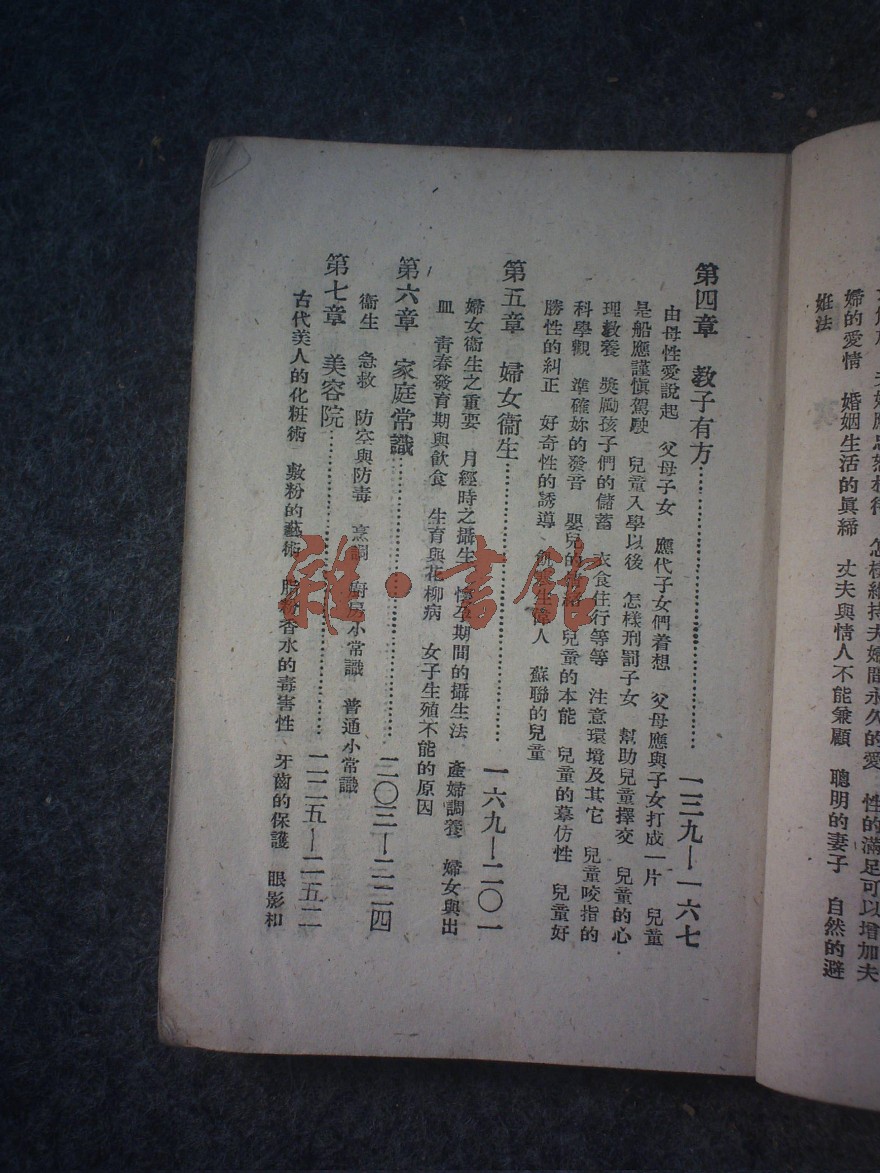 婦的愛情　婚姻生活的眞締　丈夫與情人不能兼顧　聰明的妻子　自然的避
姙法
第四章　教子有方……一三九—一六七
由母性愛說起　父母子女　應代子女們着想　父母應與子女打成一片　兒童
是船應謹愼駕駛　兒童入學以後　怎樣刑罰子女　幫助兒童擇交　兒童的心
理教養　奬勵孩子們的儲蓄　衣食住行等等　注意環境及其它　兒童咬指的
科學觀　準確妳的發音　嬰兒的　兒童的本能　兒童的摹仿性　兒童好
勝性的糾正　好奇性的誘導　偉人　蘇聯的兒童
第五章　婦女衞生……一六九—二〇一
婦女衞生之重要　月經時之攝生　懷孕期間的攝生法　產婦調養　婦女與出
血　靑春發育期與飲食　生育與花柳病　女子生殖不能的原因
第六章　家庭常識……二〇三—二二四
衞生　急救　防空與防毒　烹調　廚房小常識　普通小常識
第七章　美容院……二二五—二五二
古代美人的化粧術　敷粉的藝術　脂粉香水的毒害性　牙齒的保護　眼影和
雜·書館